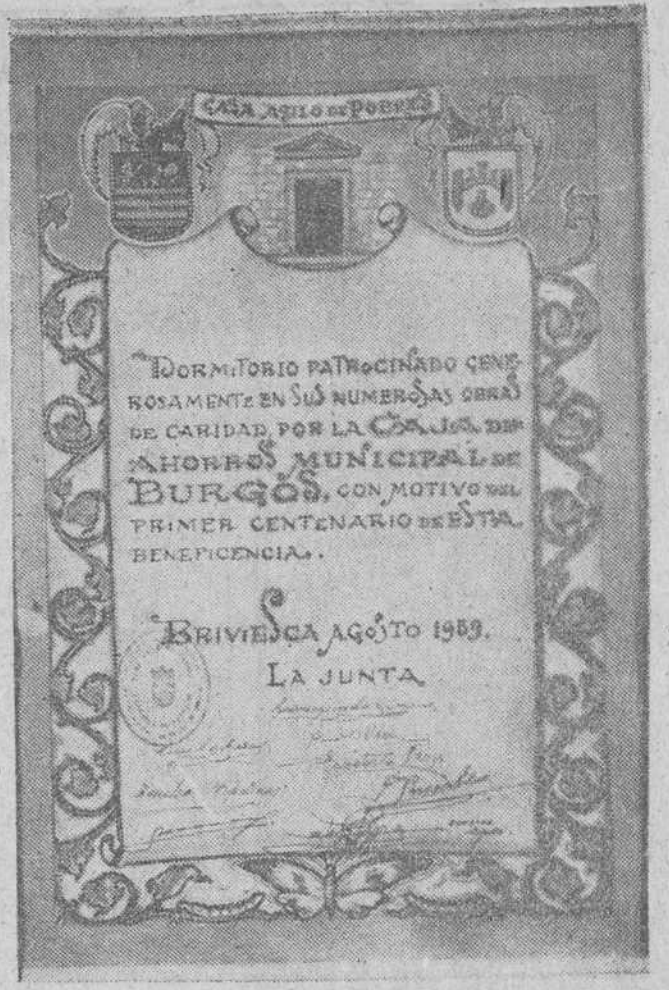 CASA ASILO DE POBRES
DORMITORIO PATROCINADO GENE-
ROSAMENTE EN SUS NUMEROSAS OBRAS
DE CARIDAD, POR LA CAJA DE
AHORROS MUNICIPAL DE
BURGOS, CON MOTIVO DEL
PRIMER CENTENARIO DE ESTA
BENEFICENCIA.
BRIVIESCA AGOSTO 1959.
LA JUNTA